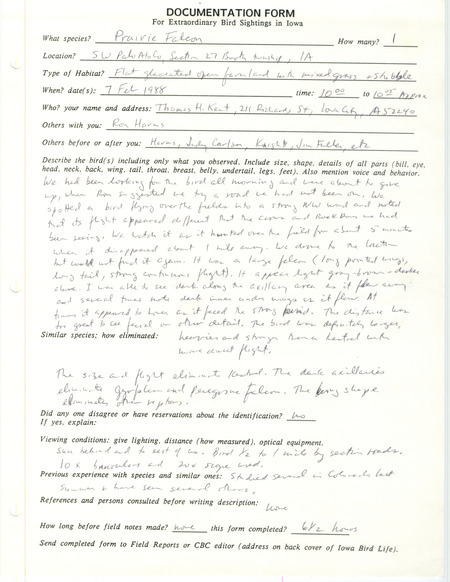 DOCUMENTATION FORM
For Extraordinary Bird Sightings in Iowa
What species? Prairie Falcon How many? 1
Location? SW Palo Alto Co, Section 27 Booth township, IA
Type of Habitat? Flat glaciated open farmland with mixed grass + stubble
When? date(s): 7 Feb 1988 time: 10:00 to 10:05
Who? your name and address: Thomas H. Kent, 211 Richards St, Iowa City, IA 52240
Others with you: Ron Harms
Others before or after you: Harms, Judy Carlson, Knight, Jim Fuller, etc
Describe the bird(s) including only what you observed. Include size, shape, details of all parts (bill, eye,
head, neck, back, wing, tail, throat, breast, belly, undertail, legs, feet). Also mention voice and behavior.
We had been looking for the bird all morning and were about to give
up, when Ron suggested we try a road we had not been on. We
spotted a bird flying over the fields into a strong NW wind and noted
that its flight appeared different than the crows and Rock Doves we had
been seeing. We watch it as it hunted over the field for about 5 minutes
when it disappeared about 1 mile away. We drove to the location
but could not find it again. It was a large falcon (long pointed wings,
long tail, strong continuous flight). It appear light gray-brown
above. I was able to see dark along the axillary area as it flew away
and several times note dark under wings as it flew. At
times it appeared to hover as it faced the strong wind. The distance was
too great to see facial or other detail. The bird was definitely larger,
Similar species; how eliminated: heavier and stronger than a kestrel with
more direct flight.
The size and flight eliminate Kestrel. The dark axillaries
eliminate Gyrfalcon and peregrine falcon. The wing shape
eliminates other raptors.
Did any one disagree or have reservations about the identification? no
If yes, explain:
Viewing conditions: give lighting, distance (how measured), optical equipment.
Sun behind and to east of us. Bird 1/2 to 1 mile by section roads.
10x binoculars and 20x scope used.
Previous experience with species and similar ones: Studied several in Colorado last
summer + have seen several others.
References and persons consulted before writing description:
none
How long before field notes made? none this form completed? 6 1/2 hours
Send completed form to Field Reports or CBC editor (address on back cover of Iowa Bird Life).